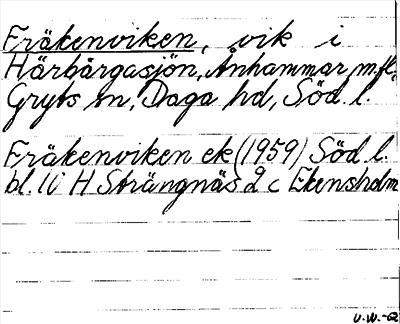 Fräkenviken, vik i
Härbärgasjön, Ånhammar m.fl.,
Gryts sn, Daga hd, Söd. l.
Fräkenviken ek (1959) Söd l.
bl. 10 H Strängnäs 2 c Ekensholm
U.W.-62